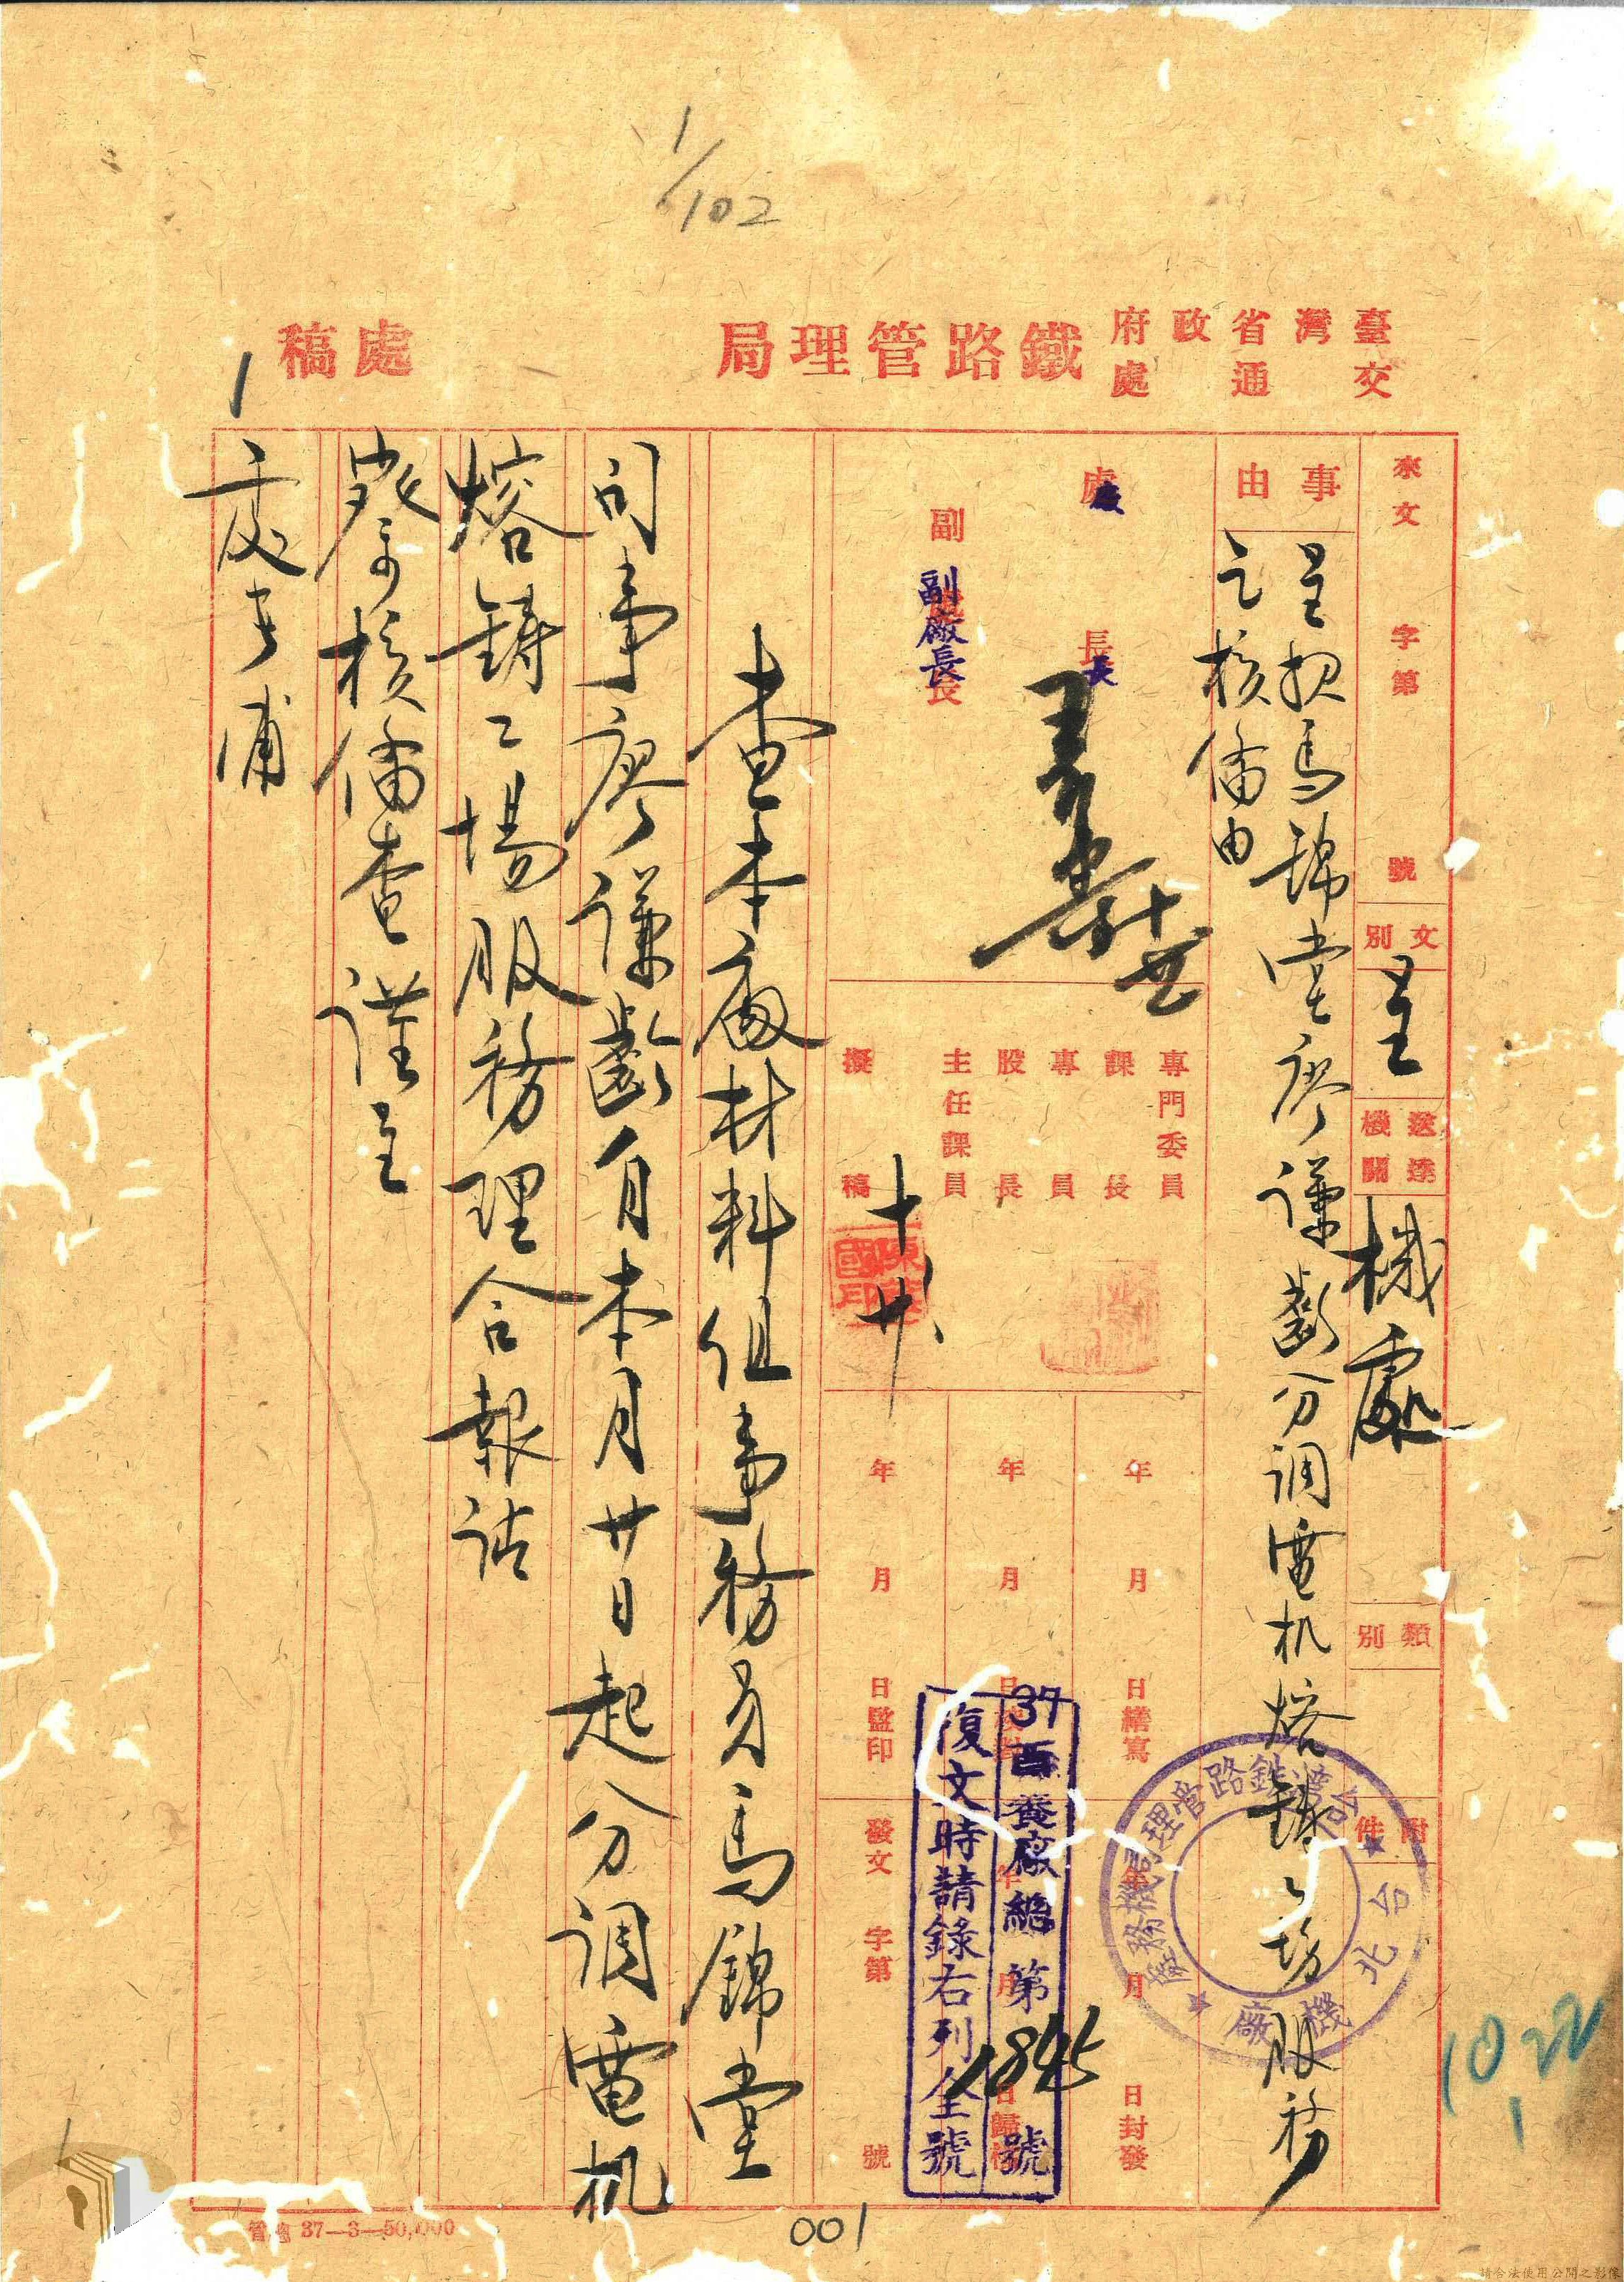 1/102
臺灣省政府
交通處
鐵路管理局
處稿
來文 字第 號
文別
呈
送達機關
機處
類別
附件
事由
呈報馬錦堂廖謙齡分調電机熔鑄工場服務
乞核備由
處長
廠長
副處長
副廠長
專門委員
課長
專員
股長
主任課員
擬稿
十
廿
年 月 日繕寫
年 月 日校對
年 月 日監印
年 月 日封發
月 日歸檔
發文 字第 號
37百養廠總第1845號
復文時請錄右列全號
台灣鉄路管理局機務處
台北機廠
查本廠材料組事務員馬錦堂
司事廖謙齡自本月廿日起分調電机
熔鑄工場服務理合報請
察核備查謹呈
處長
10.22
1
37—3—50,000
001
請合法使用公開之影像